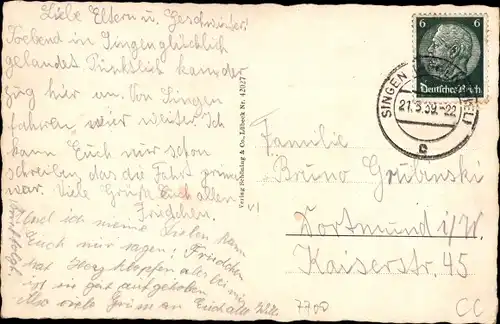 Liebe Eltern u. Geschwister
Soebend in Singen glücklich
gelandet Pünktlich kam der
Zug hier an. Von Singen
fahren wir weiter. Ich
kann Euch nur schon
schreiben das die Fahrt prima
war. Viele Grüße Euch allen
Friedchen.
Und ich meine kann
Euch nur sagen, Friedchen
hat Herzklopfen aber bei mir
ist sie gut aufgehoben
Also viele Grüße an Euch alle Willi
Verlag Schöning & Co., Lübeck Nr. 42027
6 6
Deutsches Reich
SINGEN
21.3.39.-22
c
Familie
Bruno Grubinski
Dortmund i/W.
Kaiserstr. 45
7700
CC